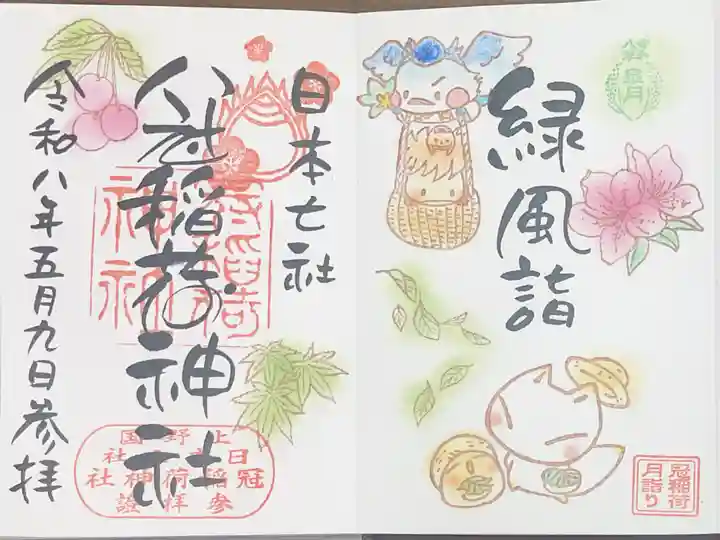 皐月
緑風詣
冠稲荷
月詣り
日本七社
冠稲荷神社
令和八年五月九日参拝
上野国
冠稲荷神社
參拝證